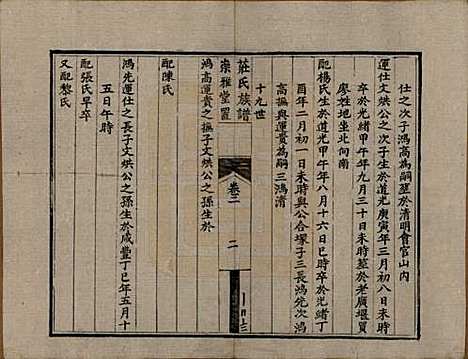 仕之次子鴻高為嗣塟於清明會官山內
運仕文烘公之次子生於道光庚寅年三月初八日未時
卒於光緒甲午年九月三十日未時塟於老廣堰買
廖姓地坐北向南
配楊氏生於道光甲午年八月十六日巳時卒於光緒丁
酉年二月初一日未時與公合塚子三長鴻先次鴻
高撫與運貴為嗣三鴻清
十九世
莊氏族譜
崇雅堂置
卷三
二
鴻高運貴之撫子文烘公之孫生於
配陳氏
鴻先運仕之長子文烘公之孫生於咸豐丁巳年五月十
五日午時
配張氏早卒
又配黎氏